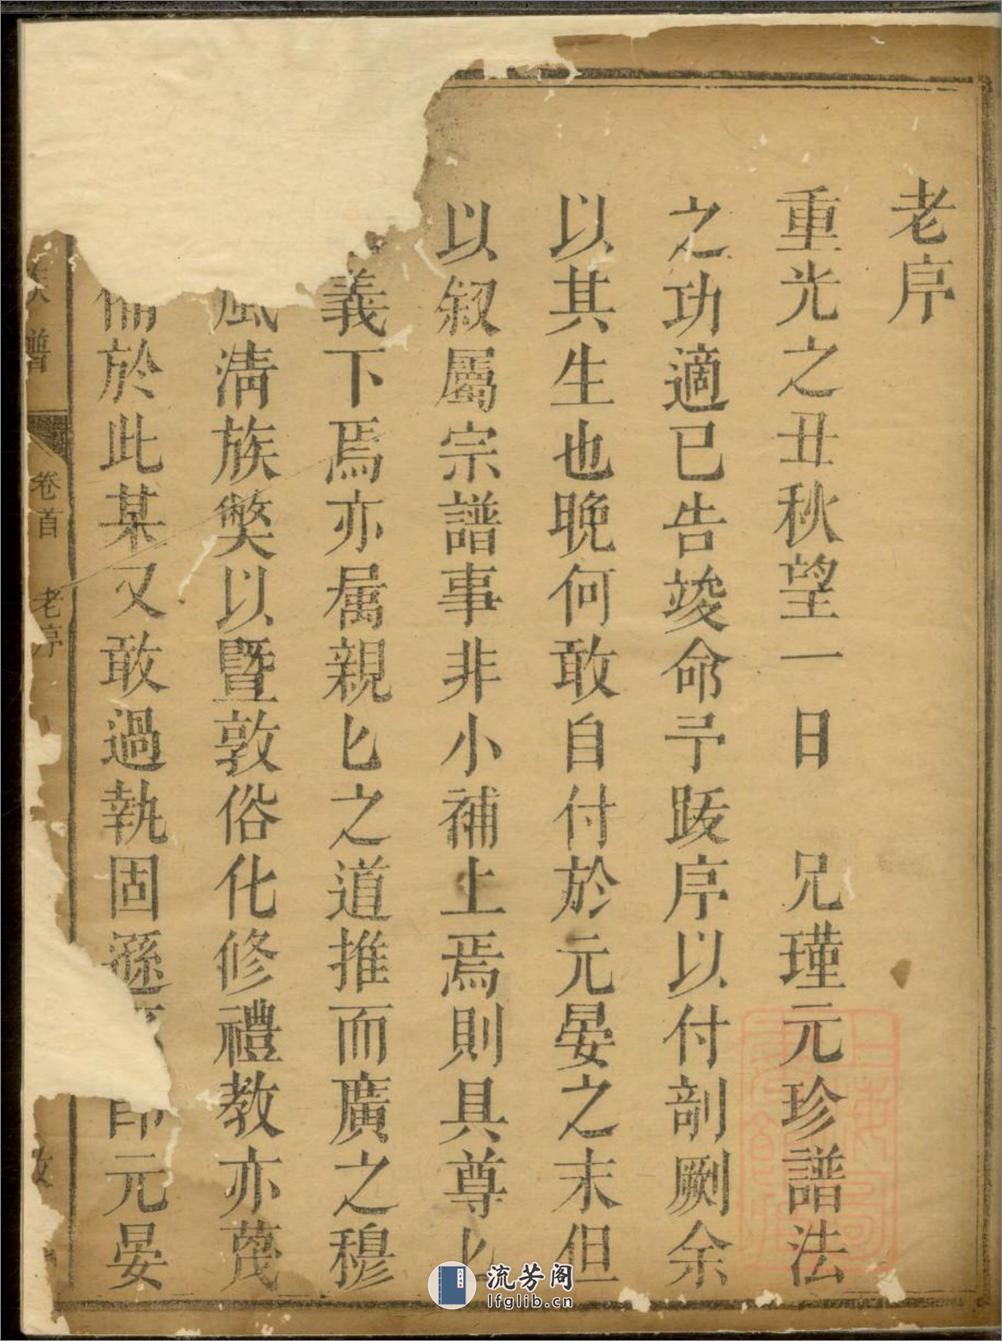 老序
重光之丑秋望一日 兄瑾元珍譜法
之功適已告竣命予跋序以付剞劂余
以其生也晚何敢自付於元晏之末但
以叙屬宗譜事非小補上焉則具尊匕
義下焉亦属親匕之道推而廣之穆
風淸族獘以暨敦俗化修禮教亦蔑
備於此某又敢過執固遜 即元晏
族譜
卷首 老序
流芳阁
lfglib.cn